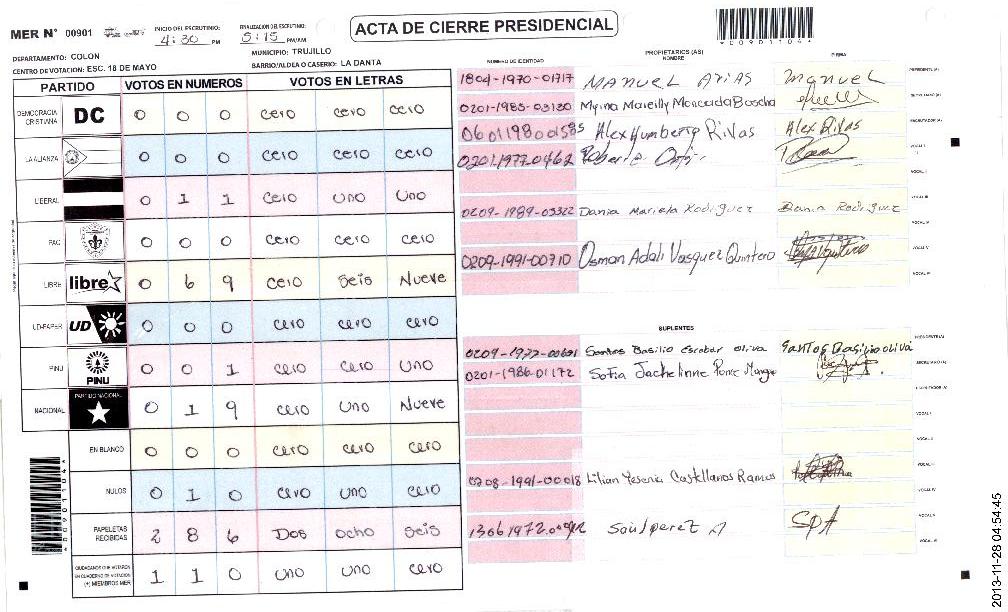 MER N° 00901
INICIO DEL ESCRUTINIO: 4:30 PM
FINALIZACION DEL ESCRUTINIO: 5:15 PM/AM
ACTA DE CIERRE PRESIDENCIAL
*00901104*
DEPARTAMENTO: COLON
MUNICIPIO: TRUJILLO
CENTRO DE VOTACION: ESC. 18 DE MAYO
BARRIO/ALDEA O CASERIO: LA DANTA
PARTIDO VOTOS EN NUMEROS VOTOS EN LETRAS
DEMOCRACIA CRISTIANA DC 0 0 0 cero cero cero
LA ALIANZA 0 0 0 cero cero cero
LIBERAL 0 1 1 cero uno uno
PAC 0 0 0 cero cero cero
LIBRE libre 0 6 9 cero seis Nueve
UD-FAPER UD 0 0 0 cero cero cero
PINU PINU 0 0 1 cero cero uno
NACIONAL PARTIDO NACIONAL 0 1 9 cero uno Nueve
EN BLANCO 0 0 0 cero cero cero
NULOS 0 1 0 cero uno cero
PAPELETAS RECIBIDAS 2 8 6 Dos ocho seis
CIUDADANOS QUE VOTARON EN CUADERNO DE VOTACION (+) MIEMBROS MER 1 1 0 uno uno cero
*00901104*
NUMERO DE IDENTIDAD PROPIETARIOS (AS) NOMBRE FIRMA
1804-1970-01717 MANUEL ArIAS Manuel PRESIDENTE(A)
0201-1985-03130 Myrna Mareilly Moncada Bascha SECRETARIO (A)
0601198001585 Alex Humberto Rivas Alex Rivas ESCRUTADOR (A)
0201-1977-0462 Roberto VOCAL I
VOCAL II
0209-1989-03322 Dania Mariela Rodriguez Dania Rodriguez VOCAL III
VOCAL IV
0209-1991-00710 Osman Adali Vasquez Quintero VOCAL V
VOCAL VI
SUPLENTES
0209-1972-00691 Santos Basilio Escobar oliva Santos Basilio oliva PRESIDENTE(A)
0201-1986-01172 Sofia Jackelinne Ponce SECRETARIO (A)
ESCRUTADOR (A)
VOCAL I
VOCAL II
0208-1991-00018 Lilian Yesenia Castellanos Ramos VOCAL III
VOCAL IV
Saúl perez A SPA VOCAL V
VOCAL VI
2013-11-28 04:54:45